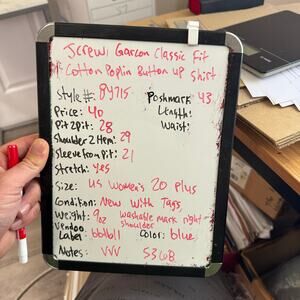 Jcrew Garcon Classic Fit
Cotton Poplin Button up shirt
Style #: BY715
Poshmark: 43
Price: 40
Length:
Pit 2 pit: 28
Waist:
Shoulder 2 Hem: 29
Sleeve from pit: 21
Stretch: yes
Size: US Women's 20 Plus
Condition: New with Tags
Weight: 9oz washable mark right shoulder
Vendoo Label: bblbl1 Color: blue
Notes: VVV